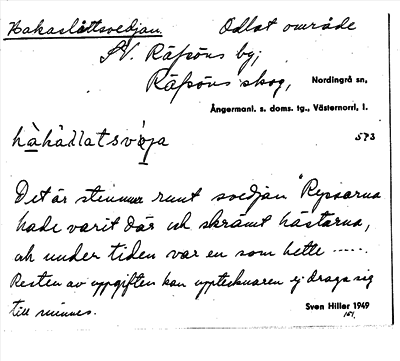 Hakaslåttsvedjan. Odlat område
SV. Räfsöns by;
Räfsöns skog, Nordingrå sn,
Ångermanl. s. doms. tg., Västernorrl. l.
573
Det är stenmur runt svedjan "Ryssarna
hade varit där och skrämt hästarna,
och under tiden var en som hette .....
Resten av uppgiften kan upptecknaren ej draga sig
till minnes.
Sven Hiller 1949